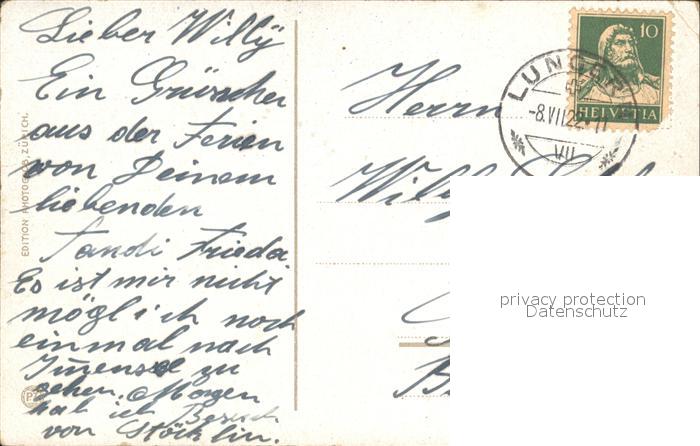 Lieber Willy
Ein Grüsschen
aus der Ferien
von Deinem
liebenden
Tandi Frieda
Es ist mir nicht
möglich noch
einmal nach
Immensee zu
gehen. Morgen
hab ich Besuch
von Stöcklin.
EDITION PHOTOGLOB, ZÜRICH.
Herrn
Willy
LUNGERN
-8.VII.22.-11
VII
10
HELVETIA
privacy protection
Datenschutz